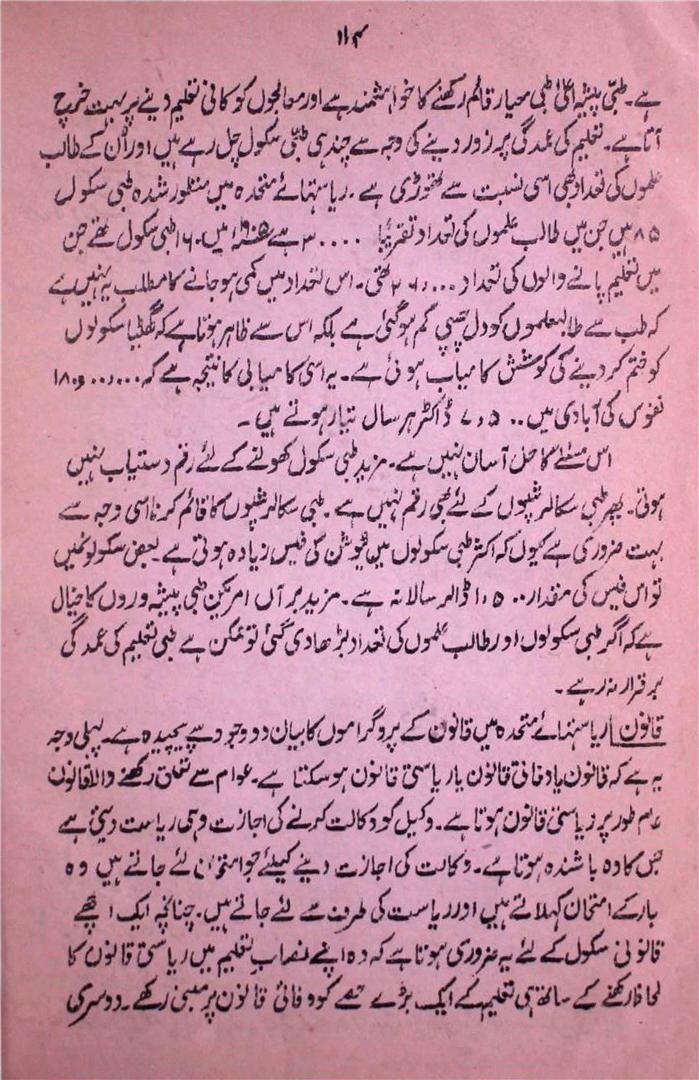 ۱۱۴
ہے۔ طبّی پیشہ اعلیٰ طبی معیار قائم رکھنے کا خواہشمند ہے اور معالجوں کو کافی تعلیم دینے پر بہت خرچ
آتا ہے۔ تعلیم کی عمدگی پر زور دینے کی وجہ سے چند ہی طبّی سکول چل رہے ہیں اور اُن کے طالب
علموں کی تعداد بھی اسی نسبت سے تھوڑی ہے۔ ریاستہائے متحدہ میں منظور شدہ طبی سکول
۸۵ ہیں جن میں طالب علموں کی تعداد تقریباً ۳۰،۰۰۰ ہے ۱۹۰۵ء میں ۱۶۰ طبی سکول تھے جن
میں تعلیم پانے والوں کی تعداد ۲۶،۰۰۰ تھی۔ اس تعداد میں کمی ہو جانے کا مطلب یہ نہیں ہے
کہ طب سے طالبعلموں کو دل چسپی کم ہو گئی ہے بلکہ اس سے ظاہر ہوتا ہے کہ گھٹیا سکولوں
کو ختم کر دینے کی کوشش کامیاب ہوئی ہے۔ یہ اسی کامیابی کا نتیجہ ہے کہ ۱۸۰،۰۰۰،۰۰۰
نفوس کی آبادی میں ۷،۵۰۰ ڈاکٹر ہر سال تیار ہوتے ہیں۔
اس مسئلے کا حل آسان نہیں ہے۔ مزید طبی سکول کھولنے کے لئے رقم دستیاب نہیں
ہوتی۔ پھر طبی سکالرشپوں کے لئے بھی رقم نہیں ہے۔ طبی سکالرشپوں کا قائم کرنا اسی وجہ سے
بہت ضروری ہے کیوں کہ اکثر طبی سکولوں میں ٹیوشن کی فیس زیادہ ہوتی ہے۔ بعض سکولوں میں
تو اس فیس کی مقدار ۱،۵۰۰ ڈالر سالانہ ہے۔ مزید برآں امریکن طبی پیشہ وروں کا خیال
ہے کہ اگر طبی سکولوں اور طالب علموں کی تعداد بڑھا دی گئی تو ممکن ہے طبی تعلیم کی عمدگی
برقرار نہ رہے۔
قانون | ریاستہائے متحدہ میں قانون کے پروگراموں کا بیان دو وجوہ سے پیچیدہ ہے۔ پہلی وجہ
یہ ہے کہ قانون یا وفاقی قانون یا ریاستی قانون ہو سکتا ہے۔ عوام سے تعلق رکھنے والا قانون
عام طور پر ریاستی قانون ہوتا ہے۔ وکیل کو وکالت کرنے کی اجازت وہی ریاست دیتی ہے
جس کا وہ باشندہ ہوتا ہے۔ وکالت کی اجازت دینے کیلئے جو امتحان لئے جاتے ہیں وہ
بار کے امتحان کہلاتے ہیں اور ریاست کی طرف سے لئے جاتے ہیں۔ چنانچہ ایک اچھے
قانونی سکول کے لئے یہ ضروری ہوتا ہے کہ وہ اپنے نصاب تعلیم میں ریاستی قانون کا
لحاظ رکھنے کے ساتھ ہی تعلیم کے ایک بڑے حصے کو وفاقی قانون پر مبنی رکھے۔ دوسری